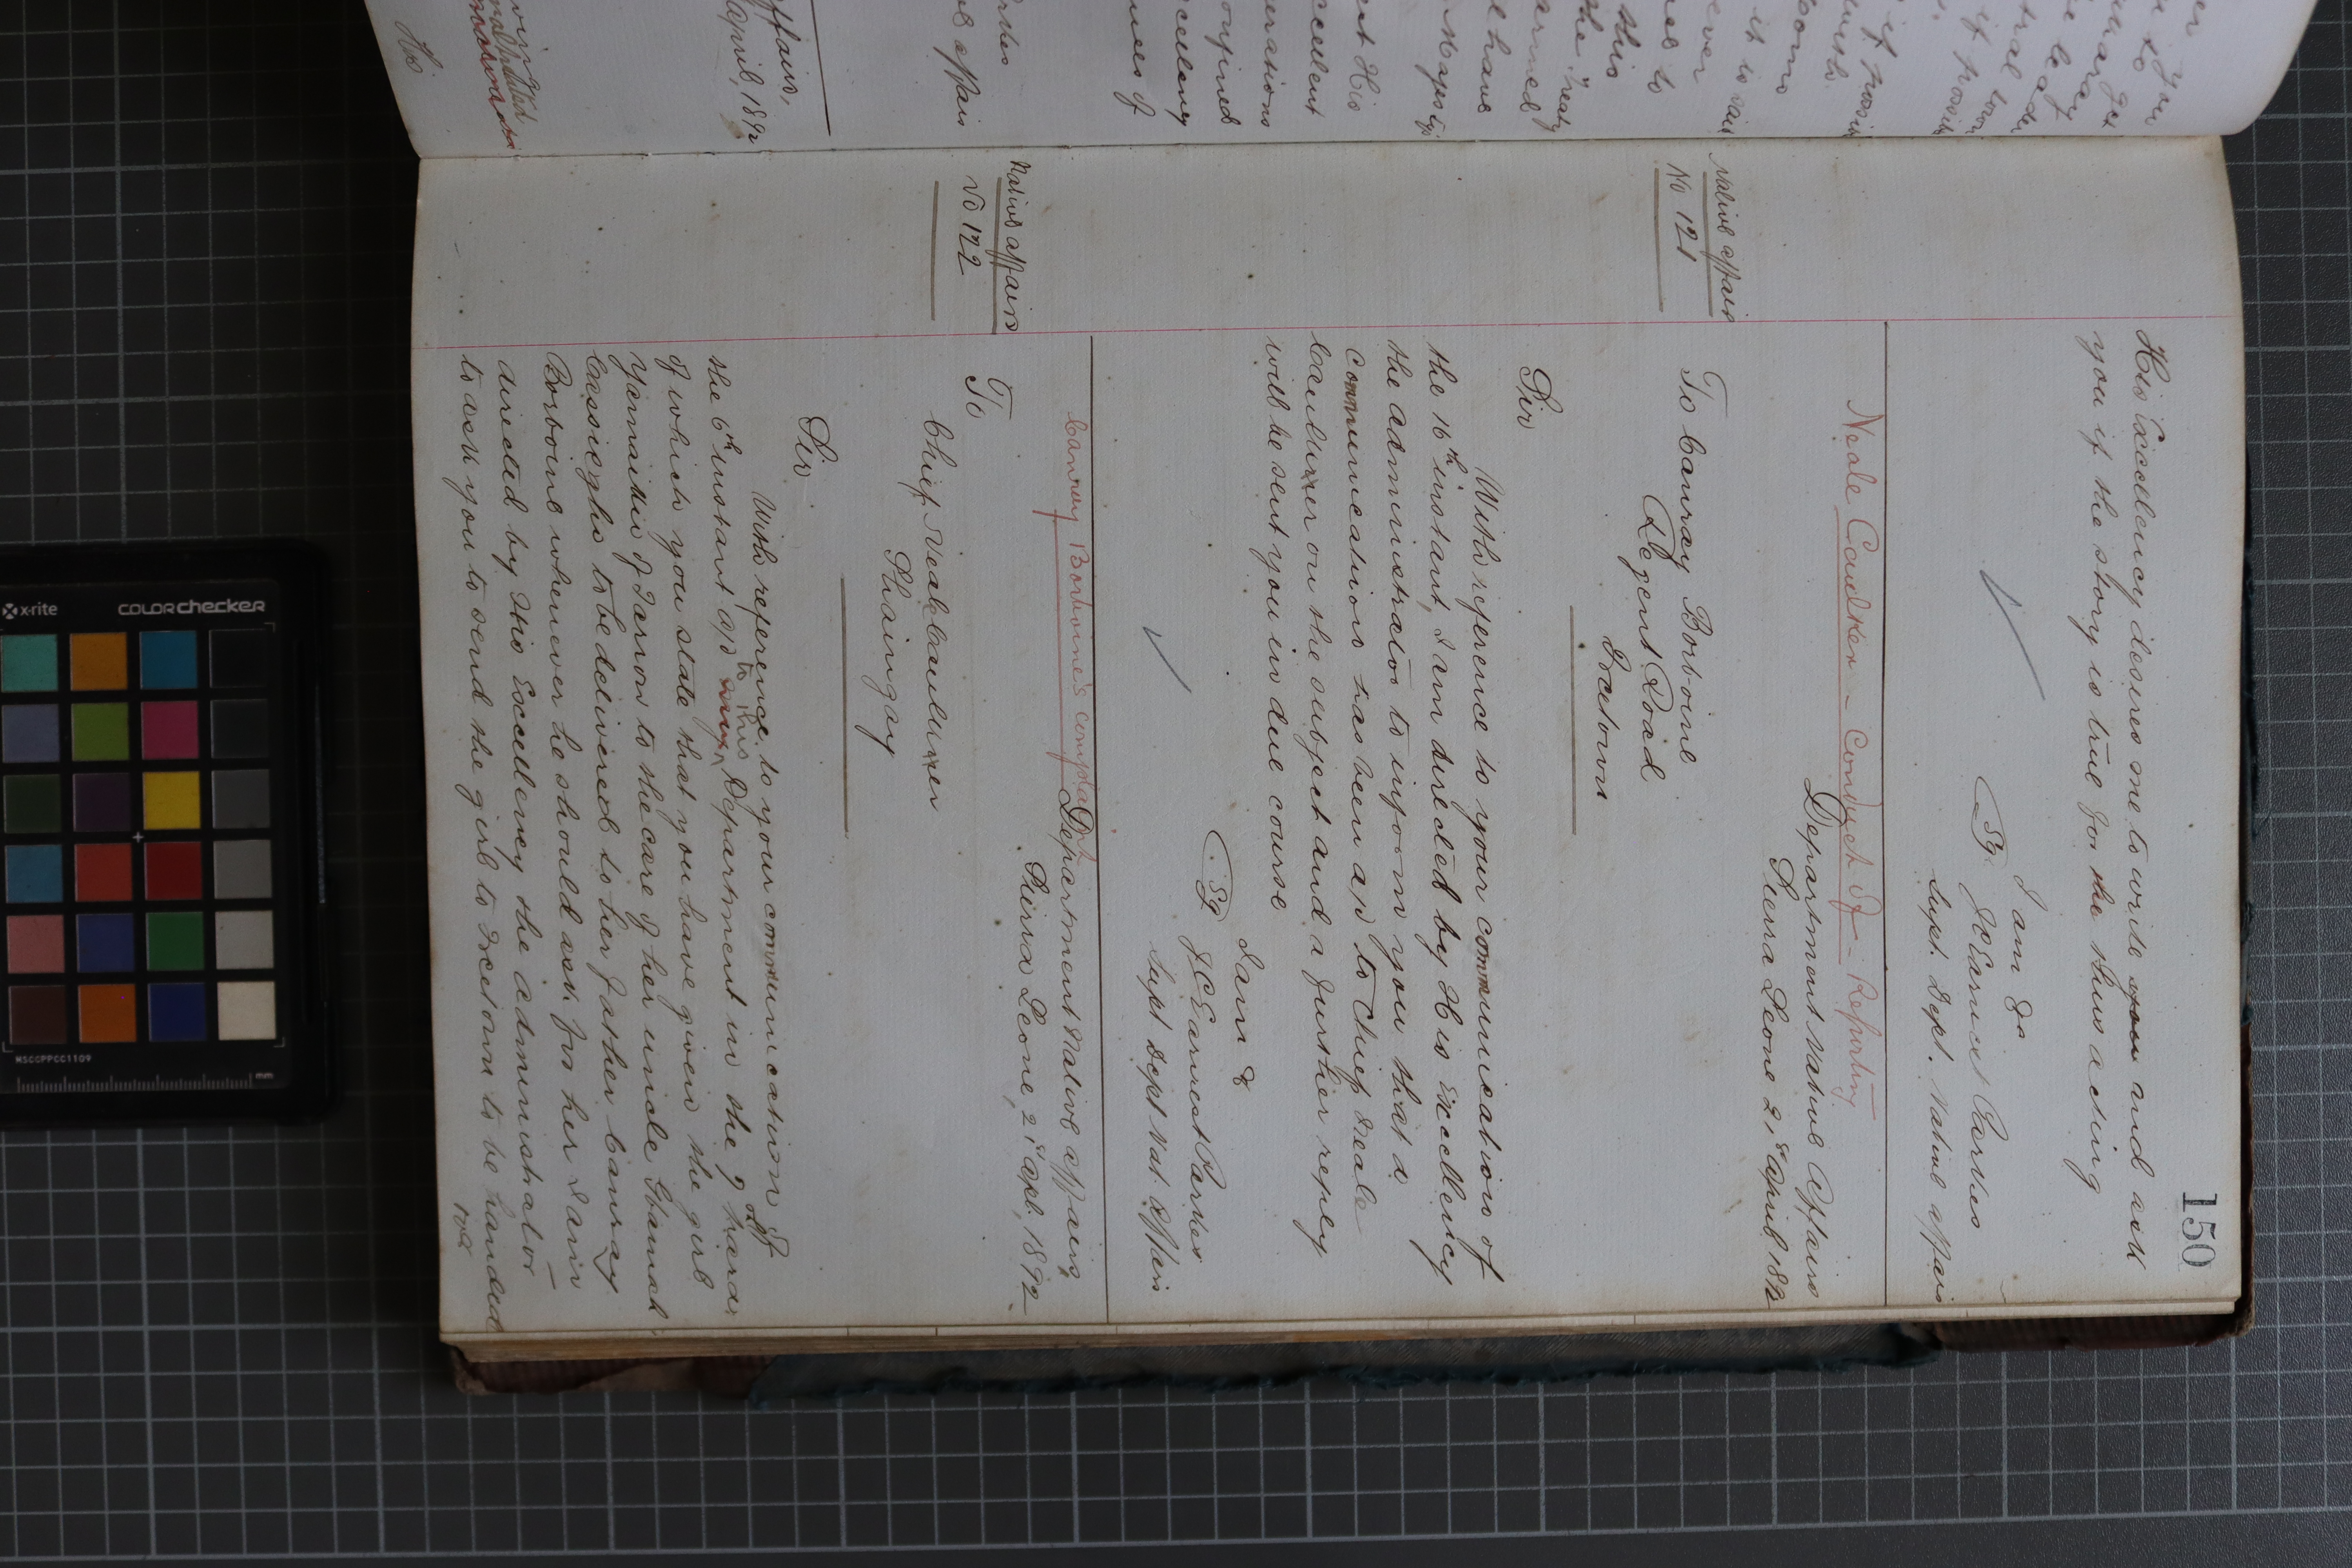 150
His Excellency desires me to write you and ask
you if the story is true for the thus acting
I am &c
Sg. J C Earnest Parkes
Supt. Dept. Native affairs
Neale Caulker - Conduct of - Reporting
Department Native Affairs
Sierra Leone 21st April 1892
Native affairs
No 121
To Canray Borboine
Regent Road
Freetown
Sir
With reference to your communication of
the 16th instant, I am directed by His Excellency
the administrator to inform you that a
communication has been add to Chief Neale
Caulker on the subject and a further reply
will be sent you in due course
I am &
Sg. J C Earnest Parkes
Supt Dept Nat. Affairs
Canray Borboine's complaint
Department Native affairs,
Sierra Leone, 21st Apl. 1892
Native affairs
No 122
To
Chief Neale Caulker
Shaingay
Sir
With reference to your communication of
the 6th instant add to this Department in the
of which you state that you have given the girl
to the care of her uncle
to be delivered to her father Canray
Borboine whenever he should ask for her I am
directed by His Excellency the administrator
to ask you to send the girl to Freetown to be handed
over
affairs,
April, 1892
His
x-rite
COLORchecker
MSCCPPCC1109
mm